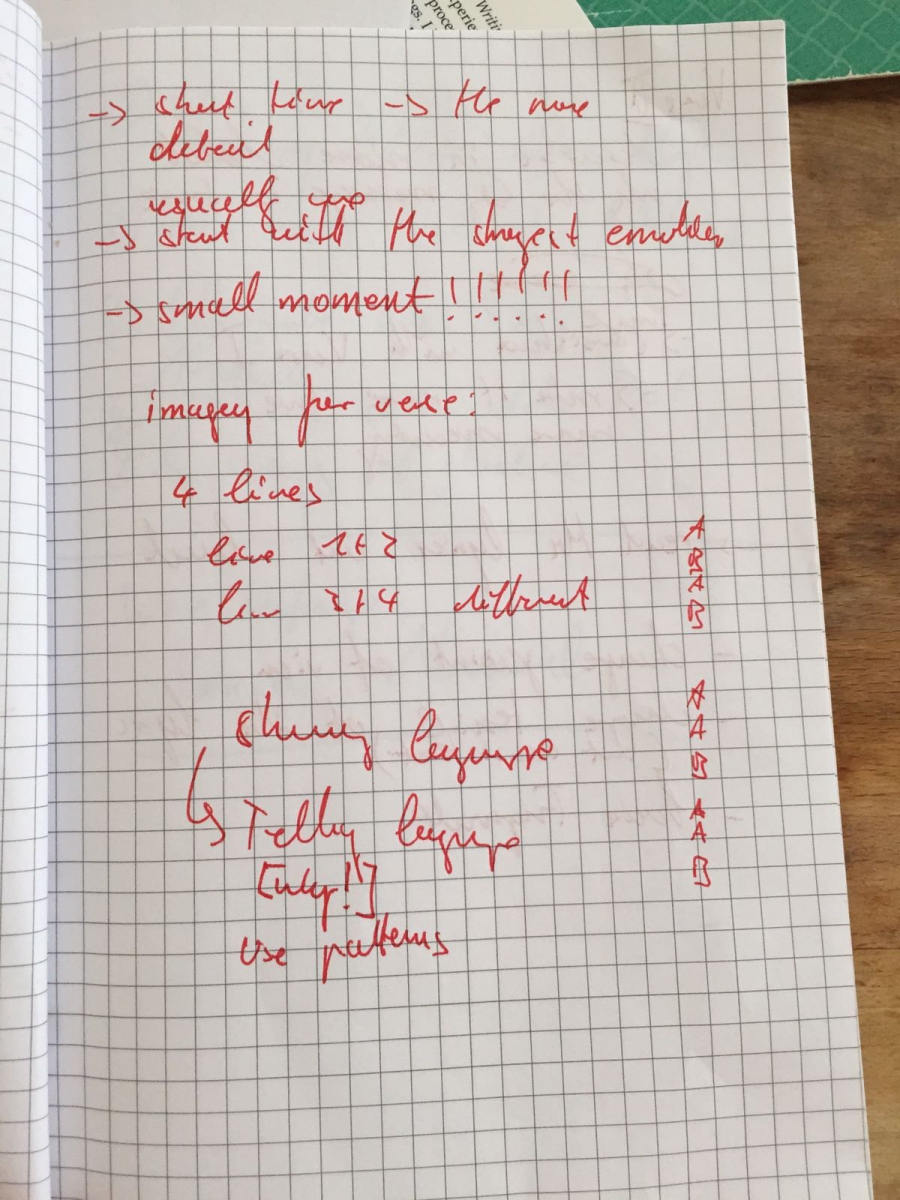 Writi
perie
proce
gs. I
-> short time -> the more
detail
usually
-> start with the
-> small moment !!!!!!
imagery per verse:
4 lines
line 1+2
line 3+4 different
A
B
A
B
A
A
B
A
A
B
Showing language
Telling language
[why!]
use patterns